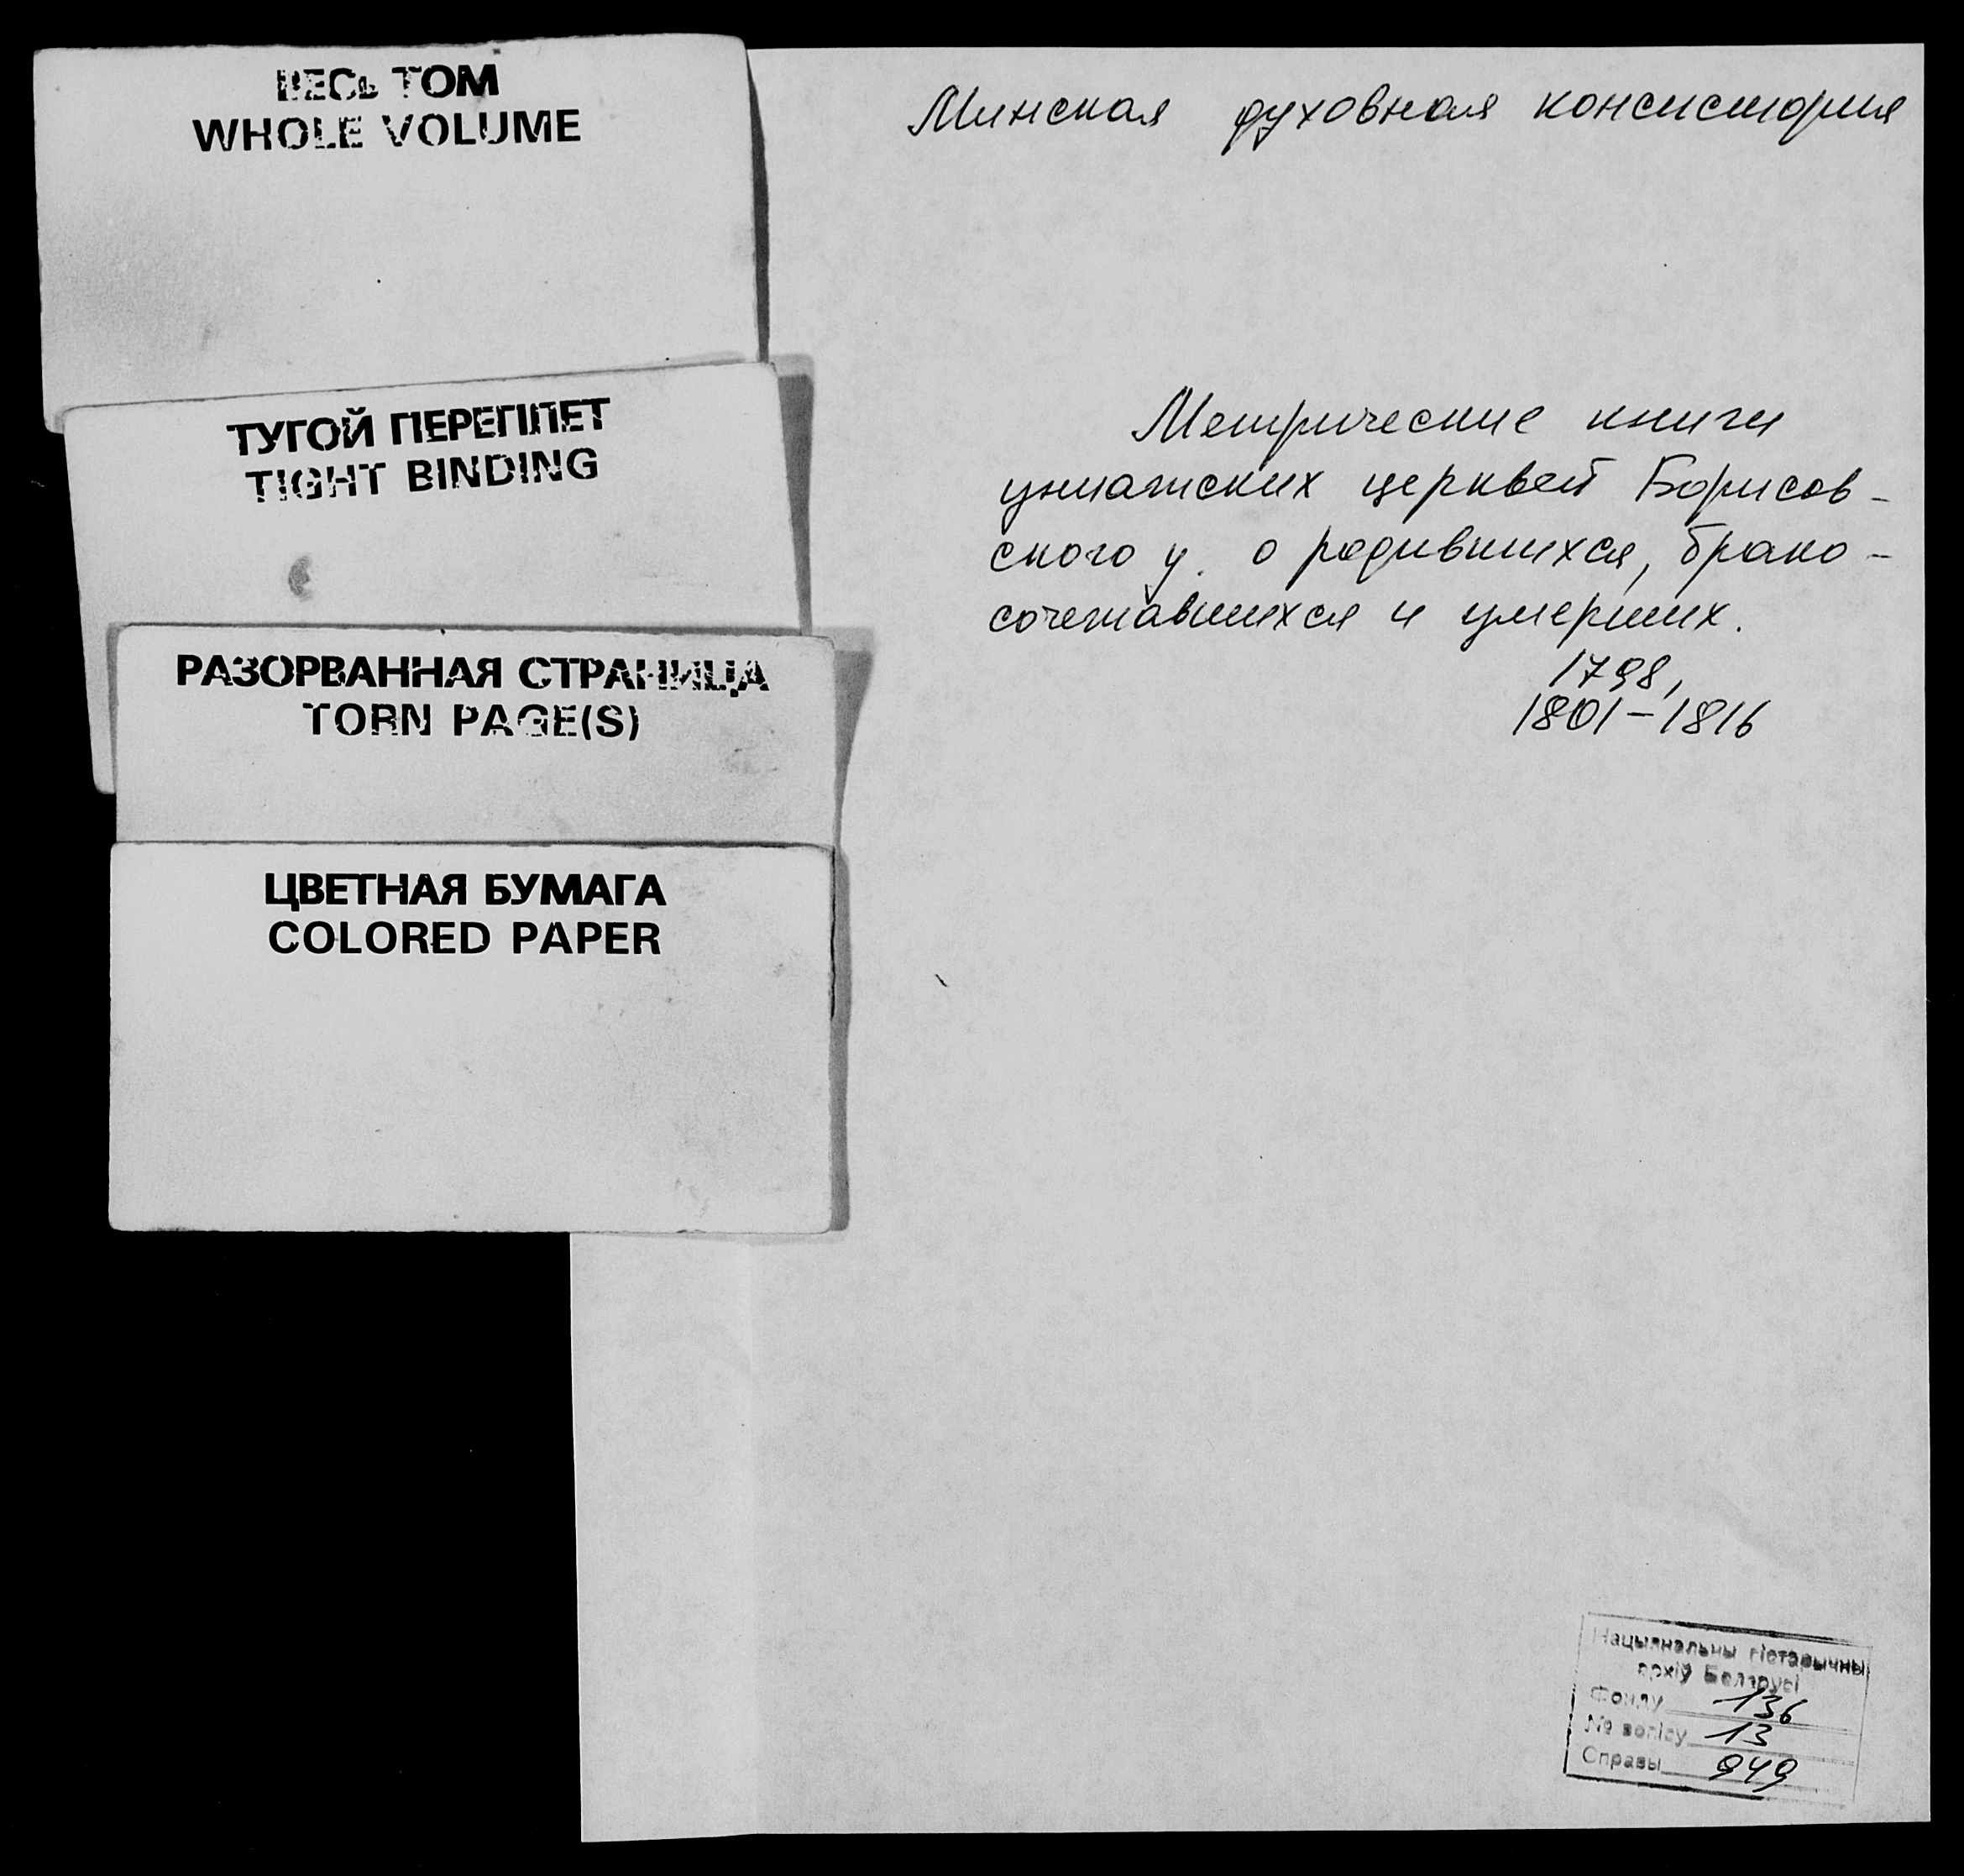 ВЕСЬ ТОМ
WHOLE VOLUME
ТУГОЙ ПЕРЕПЛЕТ
TIGHT BINDING
РАЗОРВАННАЯ СТРАНИЦА
TORN PAGE(S)
ЦВЕТНАЯ БУМАГА
COLORED PAPER
Минская духовная консистория
Метрические книги
униатских церквей Борисов-
ского у. о родившихся, брако-
сочетавшихся и умерших.
1798,
1801-1816
Нацыянальны гістарычны
архіў Беларусі
Фонду 136
№ вопісу 13
Справы 949